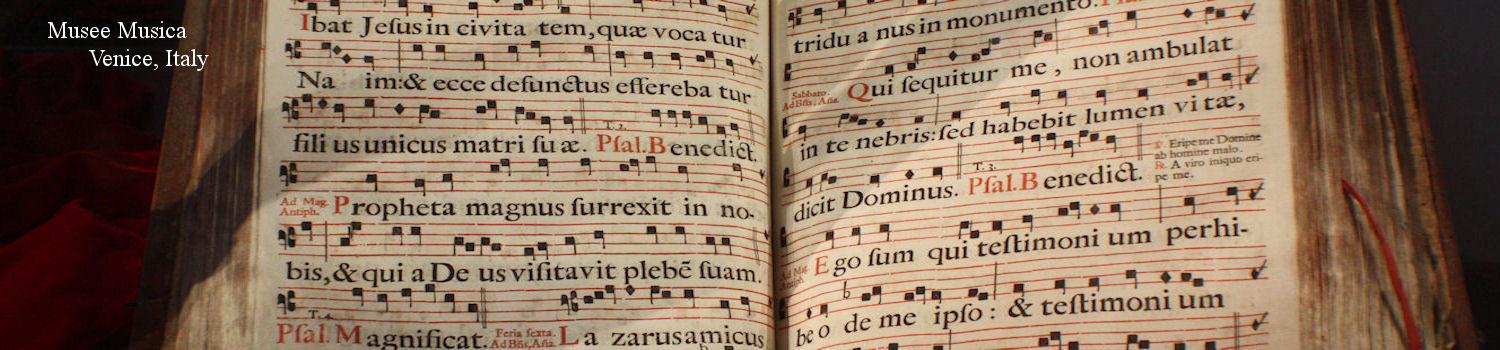 Musee Musica
Venice, Italy
Ibat Jeſus in civita tem, quæ voca tur
Na im: & ecce defunctus effereba tur
fili us unicus matri ſu æ. Pſal. Benedict.
T. 2.
Ad Mag. Antiph. Propheta magnus ſurrexit in no-
bis, & qui a De us viſitavit plebē ſuam.
T. 4.
Pſal. Magnificat. Feria ſexta. Ad Bñs, Aña. La zarus amicus
tridu a nus in monumento.
Sabbato. Ad Bñs, Aña. Qui ſequitur me, non ambulat
in te nebris: ſed habebit lumen vi tæ,
T. 3.
dicit Dominus. Pſal. Benedict.
℣. Eripe me Domine
ab homine malo.
℟. A viro iniquo eri-
pe me.
Ad Mag. Antiph. Ego ſum qui teſtimoni um perhi-
be o de me ipſo: & teſtimoni um